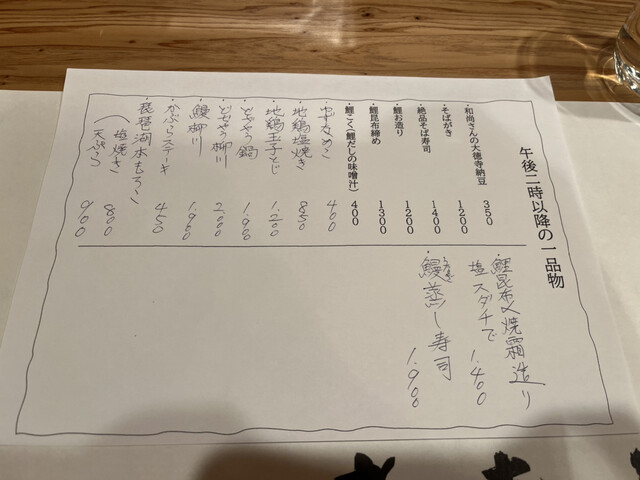 午後二時以降の一品物
・和尚さんの大徳寺納豆 350
・そばがき 1200
・絶品そば寿司 1400
・鯉お造り 1200
・鯉昆布締め 1300
・鯉こく（鯉だしの味噌汁） 400
400
・地鶏塩焼き 850
・地鶏玉子とじ 1.200
・どぜう鍋 1.900
・どぜう柳川 2.000
・鰻柳川 1.900
・かぶらステーキ 450
・琵琶湖本もろこ
塩焼き 800
天ぷら 900
・鯉昆布〆焼霜造り
塩スダチで 1.400
・鰻蒸し寿司 1.900